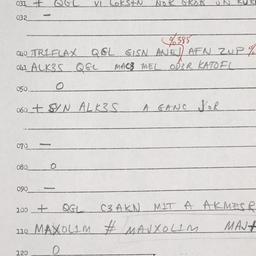 031 + QGL VI LOKSTN NOR GROB UN
032 —
040 TRIFLAX QGL GISN ANEJ AFN ZUP %
%585
041 ALK3S QGL MAC3 MEL ODER KATOFL
050 O
060 + SYN ALK3S A GANC JOR
070 —
080 O
090 —
100 + QGL C3AKN MIT A AKMESR
110 MAXOLIM # MAUXOLIM MAJ
120 O